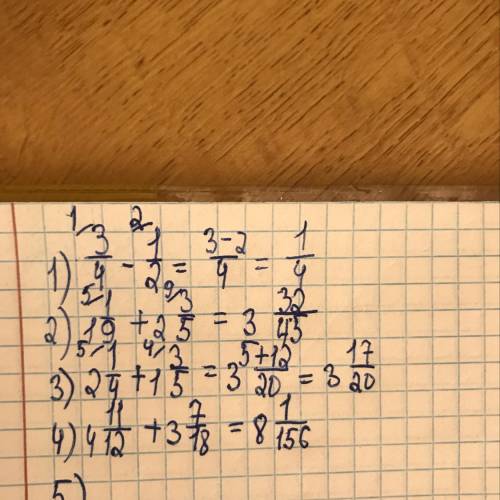 1) ¹⁄3/4 - ²⁄1/2 = 3-2/4 = 1/4
2) ⁵⁄1 1/9 + ⁹⁄2 3/5 = 3 32/45
3) ⁵⁄2 1/4 + ⁴⁄1 3/5 = 3 5+12/20 = 3 17/20
4) 4 11/12 + 3 7/18 = 8 1/156
5)